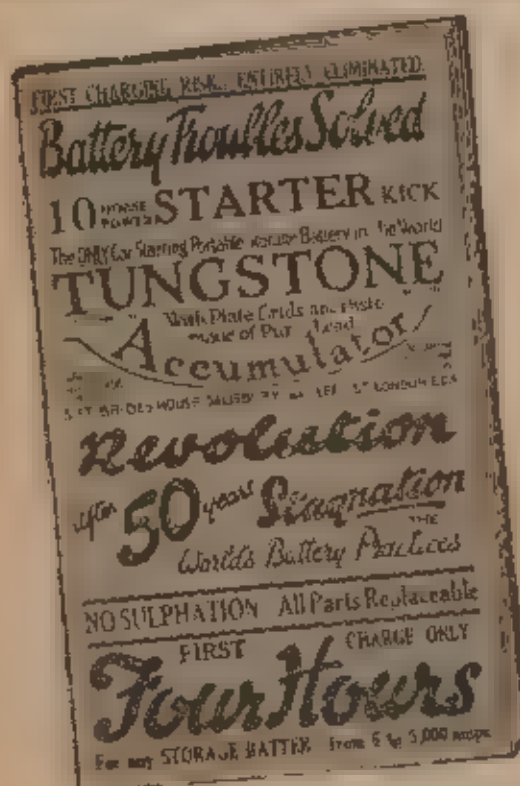 FIRST CHARGING RISK ENTIRELY ELIMINATED
Battery Troubles Solved
10 HORSE POWER STARTER KICK
The ONLY Car Starting Portable Battery in the World
TUNGSTONE
With Plate Grids and Paste
made of Pure Lead
Accumulator
ST. BRIDES HOUSE SALISBURY LONDON E.C.4
Revolution
After 50 years Stagnation
THE
World's Battery Practices
NO SULPHATION All Parts Replaceable
FIRST CHARGE ONLY
Four Hours
For any STORAGE BATTERY from 5 to 5,000 amps